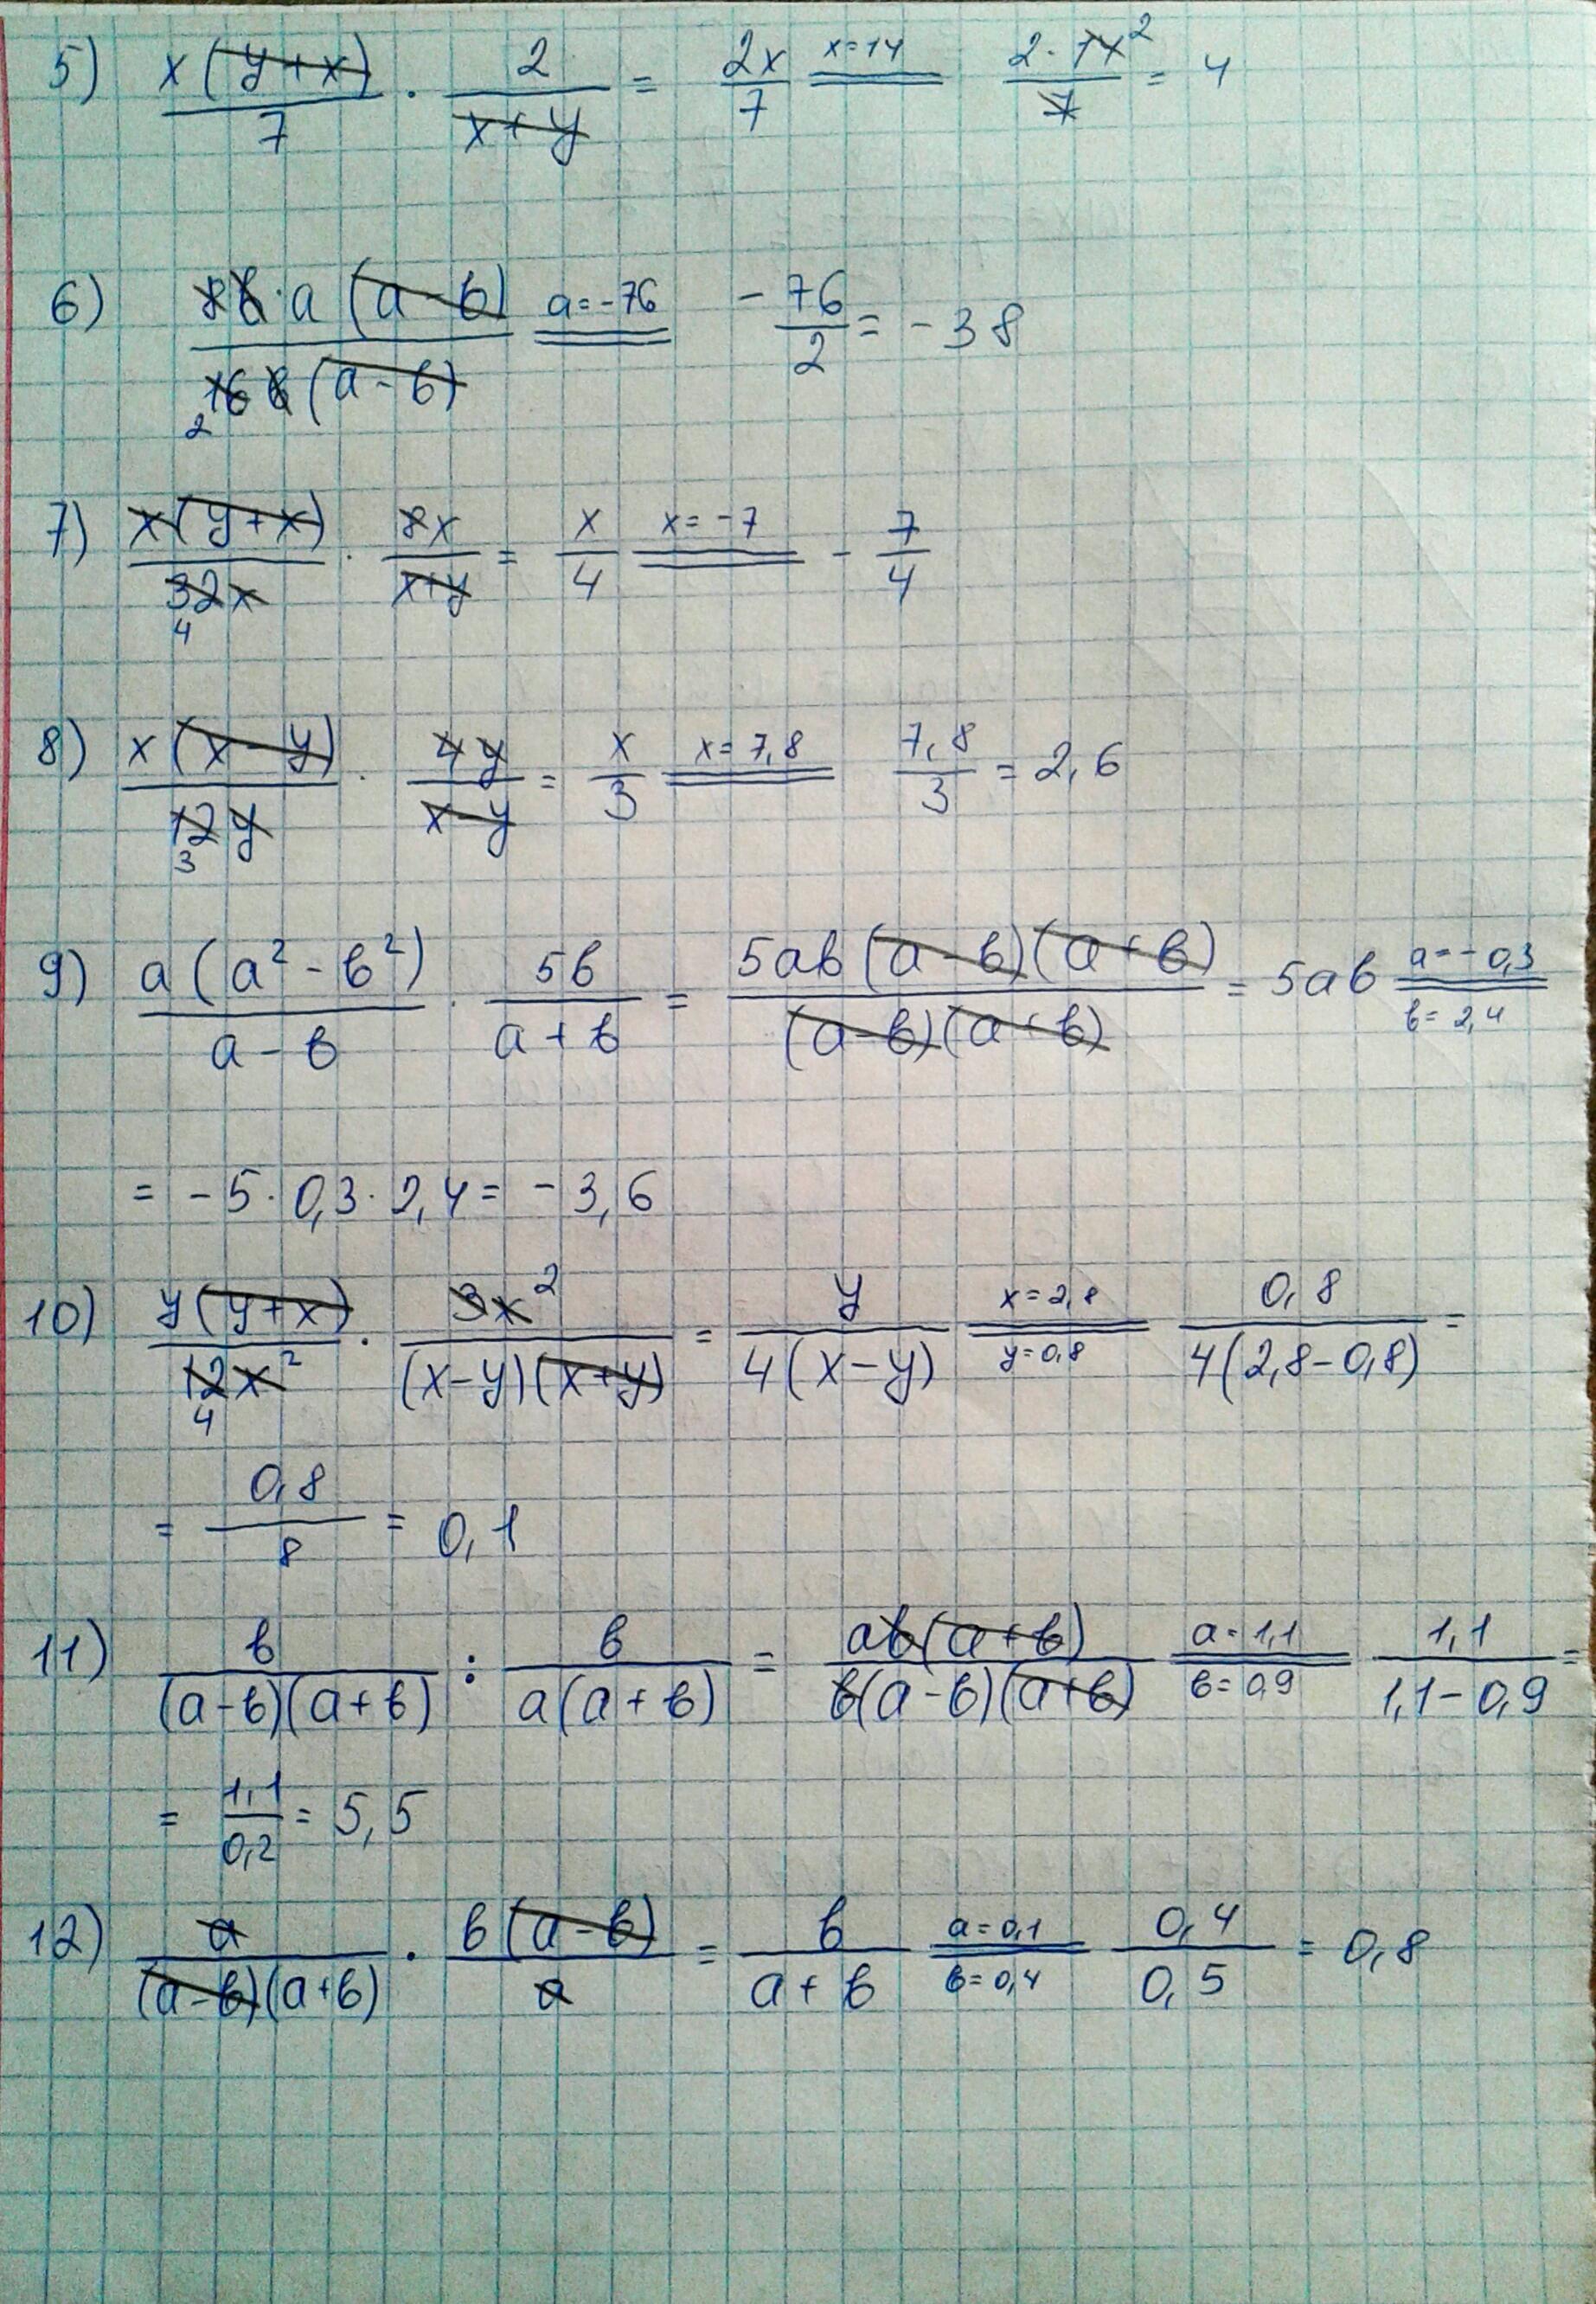 5) x(y+x)/7 · 2/(x+y) = 2x/7 x=14 2·14²/7 = 4
6) 8в·a(a-в)/16в(a-в) 2 a=-76 -76/2 = -38
7) x(y+x)/32x 4 · 8x/(x+y) = x/4 x=-7 -7/4
8) x(x-y)/12y 3 · 4y/(x-y) = x/3 x=7,8 7,8/3 = 2,6
9) a(a²-в²)/(a-в) · 5в/(a+в) = 5aв(a-в)(a+в)/(a-в)(a+в) = 5aв a=-0,3 в=2,4
= -5·0,3·2,4 = -3,6
10) y(y+x)/12x² 4 · 3x²/(x-y)(x+y) = y/4(x-y) x=2,8 y=0,8 0,8/4(2,8-0,8) =
= 0,8/8 = 0,1
11) в/(a-в)(a+в) : в/a(a+в) = aв(a+в)/в(a-в)(a+в) a=1,1 в=0,9 1,1/(1,1-0,9) =
= 1,1/0,2 = 5,5
12) a/(a-в)(a+в) · в(a-в)/a = в/(a+в) a=0,1 в=0,4 0,4/0,5 = 0,8